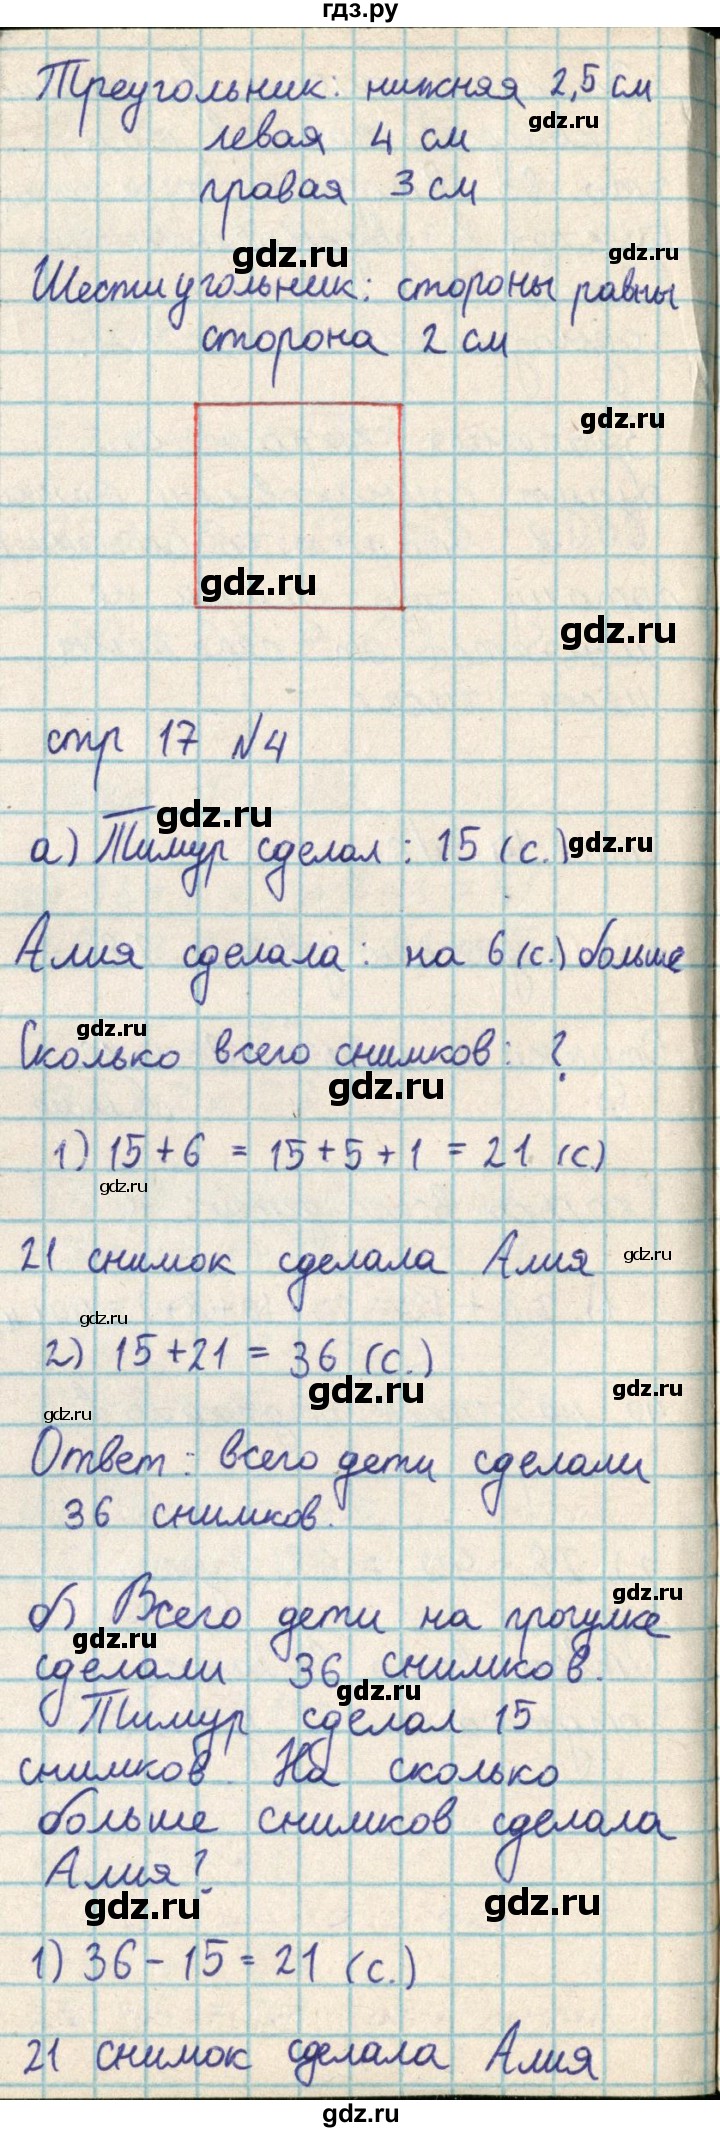 гдз.ру
Треугольник: нижняя 2,5 см
gdz.ru
левая 4 см
правая 3 см
gdz.ru
gdz.ru
Шестиугольник: стороны равны
сторона 2 см
gdz.ru
gdz.ru
gdz.ru
стр 17 №4
gdz.ru
а) Тимур сделал: 15 (с.)
gdz.ru
Алия сделала: на 6 (с.) больше
gdz.ru
Сколько всего снимков: ?
gdz.ru
1) 15+6 = 15+5+1 = 21 (с)
gdz.ru
21 снимок сделала Алия
gdz.ru
gdz.ru
2) 15+21 = 36 (с.)
gdz.ru
gdz.ru
gdz.ru
Ответ: всего дети сделали
36 снимков.
gdz.ru
б) Всего дети на прогулке
gdz.ru
сделали 36 снимков.
gdz.ru
Тимур сделал 15
снимков. На сколько
больше снимков сделала
Алия?
gdz.ru
gdz.ru
1) 36-15=21 (с.)
21 снимок сделала Алия
gdz.ru